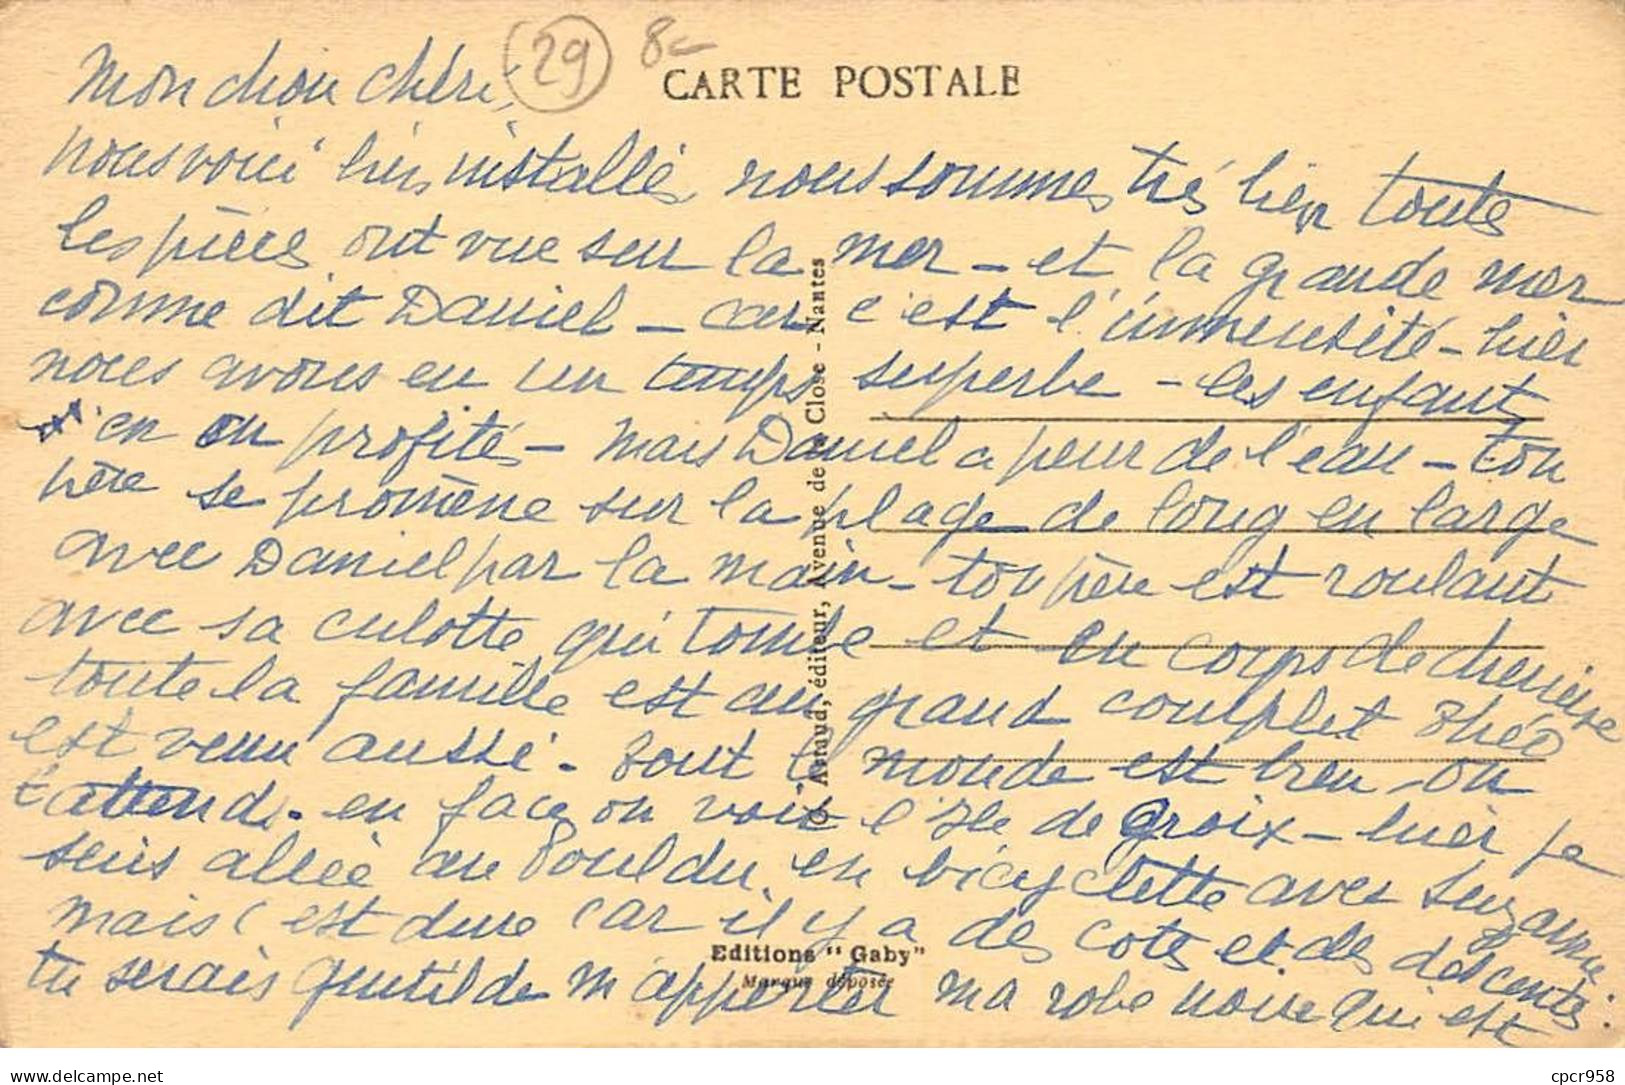 29 8-
CARTE POSTALE
Mon chou chéri,
nous voici bien installés nous sommes très bien toute
les pièces ont vue sur la mer - et la grande mer
comme dit Daniel - car c'est l'immensité - hier
nous avons eu un temps superbe - les enfants
en on profités - mais Daniel a peur de l'eau - ton
père se promène sur la plage de long en large
avec Daniel par la main - ton père est roulant
avec sa culotte qui tombe et en corps de chemise
toute la famille est au grand complet Théo
est venu aussi - tout le monde est bien on
t'attend - en face on voit l'Ile de Groix - hier je
suis allée au Pouldu en bicyclette avec Suzanne
mais c'est dure car il y a des cotes et des descentes.
tu serais gentil de m'apporter ma robe noire qui est
Artaud, éditeur, Avenue de la Close - Nantes
Editions "Gaby"
Marque déposée
delcampe.net
cpcr958